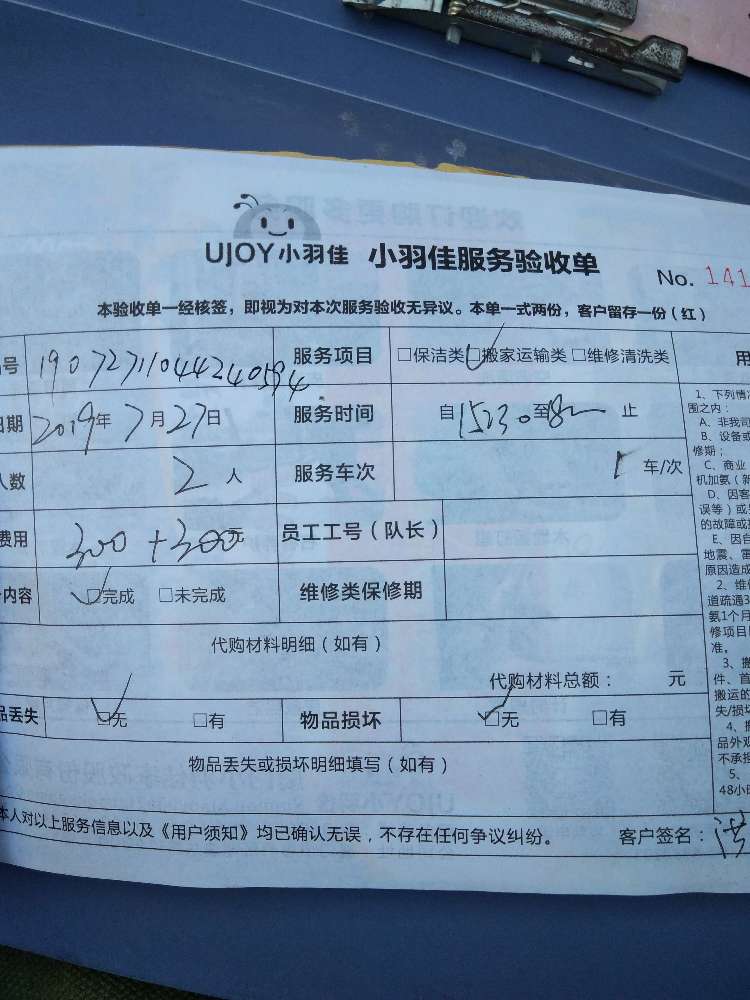 UJOY小羽佳 小羽佳服务验收单
No. 141
本验收单一经核签，即视为对本次服务验收无异议。本单一式两份，客户留存一份（红）
号 19072711044240594 服务项目 □保洁类 □搬家运输类 □维修清洗类 用
日期 2019年7月27日 服务时间 自 至 止
人数 2人 服务车次 1车/次
费用 300+300元 员工工号（队长）
内容 □完成 □未完成 维修类保修期
代购材料明细（如有）
代购材料总额： 元
品丢失 □无 □有 物品损坏 □无 □有
物品丢失或损坏明细填写（如有）
本人对以上服务信息以及《用户须知》均已确认无误，不存在任何争议纠纷。 客户签名：
1、下列情
围之内：
A、非我司
B、设备或
修期；
C、商业
机加氨（新
D、因客
误等）或
的故障或
E、因自
地震、雷
原因造成
2、维修
道疏通3
氨1个月
修项目
准。
3、搬
件、首
搬运的
失/损坏
4、搬
品外观
不承担
5、
48小时